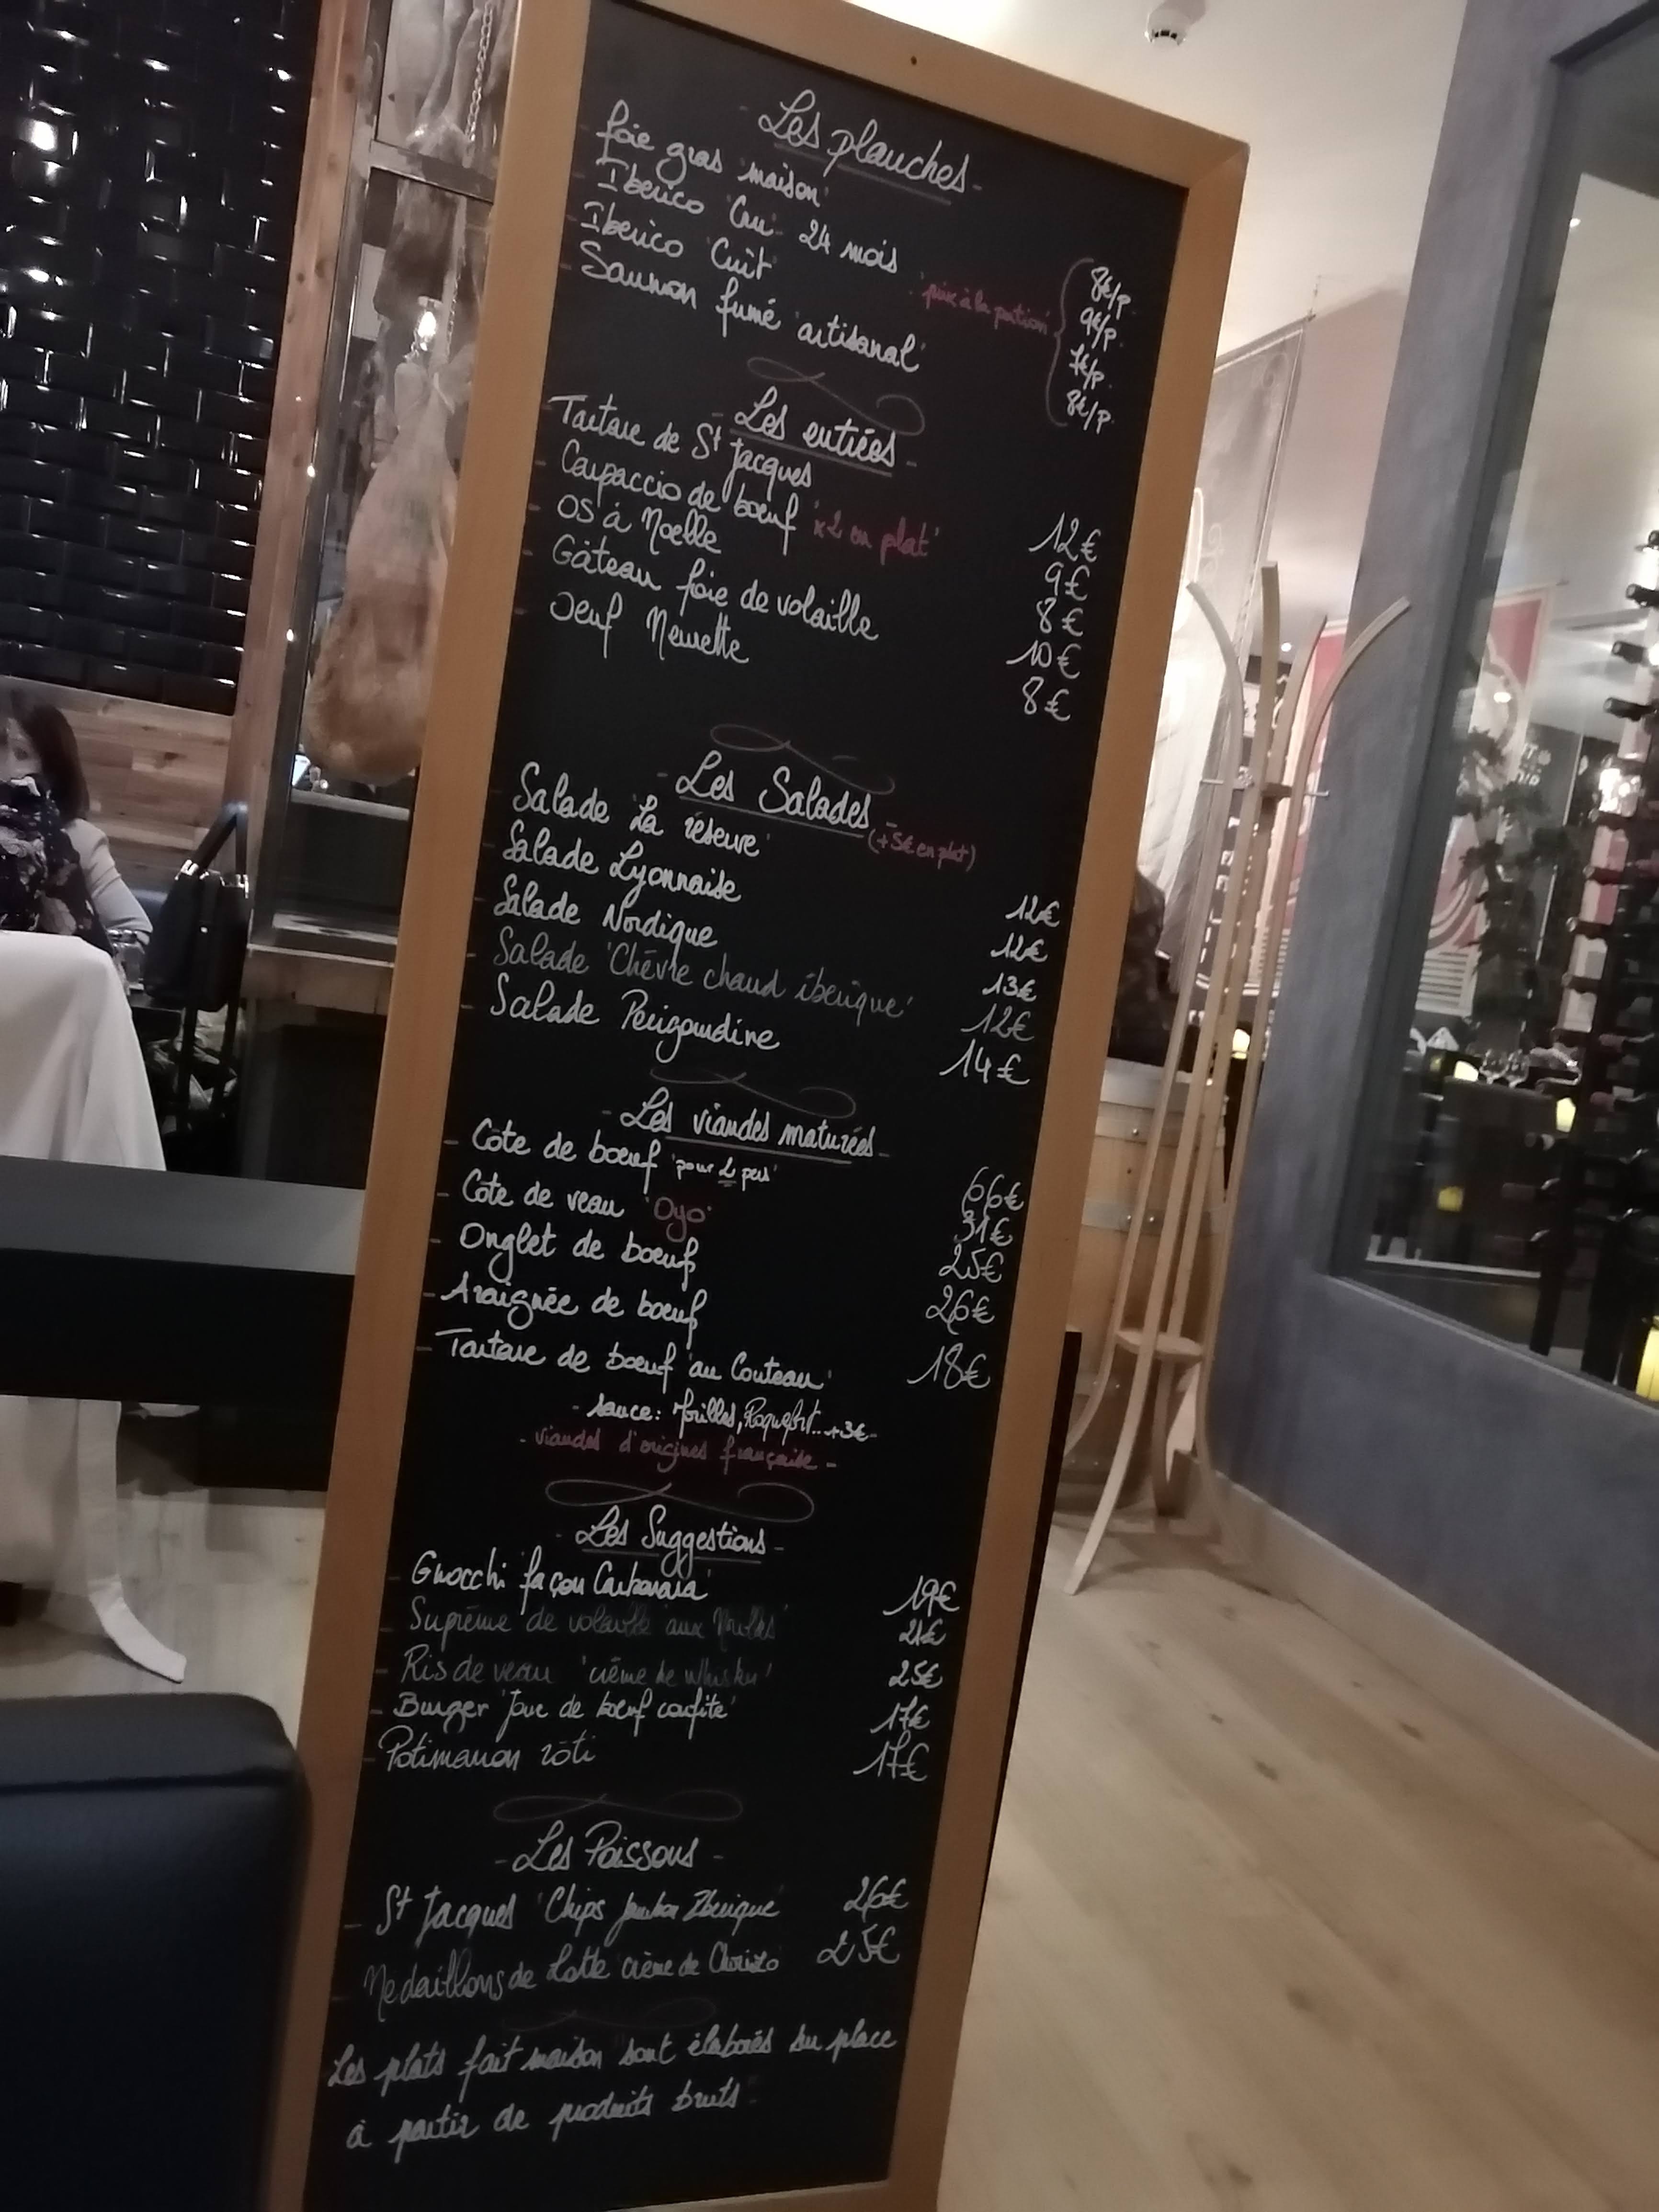 - Les planches -
- foie gras 'maison'
- Iberico 'Cru' 24 mois
- Iberico 'Cuit'
- Saumon fumé 'artisanal'
prix à la portion
8€/P.
9€/P.
7€/P.
8€/P.
- Les entrées -
- Tartare de St Jacques 12€
- Carpaccio de boeuf 'x2 en plat' 9€
- OS à Moelle 8€
- Gâteau foie de volaille 10€
- Oeuf Meurette 8€
- Les Salades -
(+5€ en plat)
- Salade 'La réserve' 12€
- Salade Lyonnaise 12€
- Salade Nordique 13€
- Salade 'Chèvre chaud ibérique' 12€
- Salade Périgourdine 14€
- Les viandes maturées -
- Côte de boeuf 'pour 2 pers' 66€
- Côte de veau 'Oyo' 31€
- Onglet de boeuf 25€
- Araignée de boeuf 26€
- Tartare de boeuf 'au Couteau' 18€
- sauce: Morilles, Roquefort... +3€ -
- viandes d'origines française -
- Les Suggestions -
- Gnocchi 'façon Carbonara' 19€
- Suprême de volaille 'aux Morilles' 21€
- Ris de veau 'crème de Whisky' 25€
- Burger 'Joue de boeuf confite' 17€
- Potimarron rôti 17€
- Les Poissons -
- St Jacques 'Chips Jambon Ibérique' 26€
- Médaillons de Lotte 'crème de Chorizo' 25€
Les plats 'fait maison' sont élaborés sur place
à partir de produits bruts.